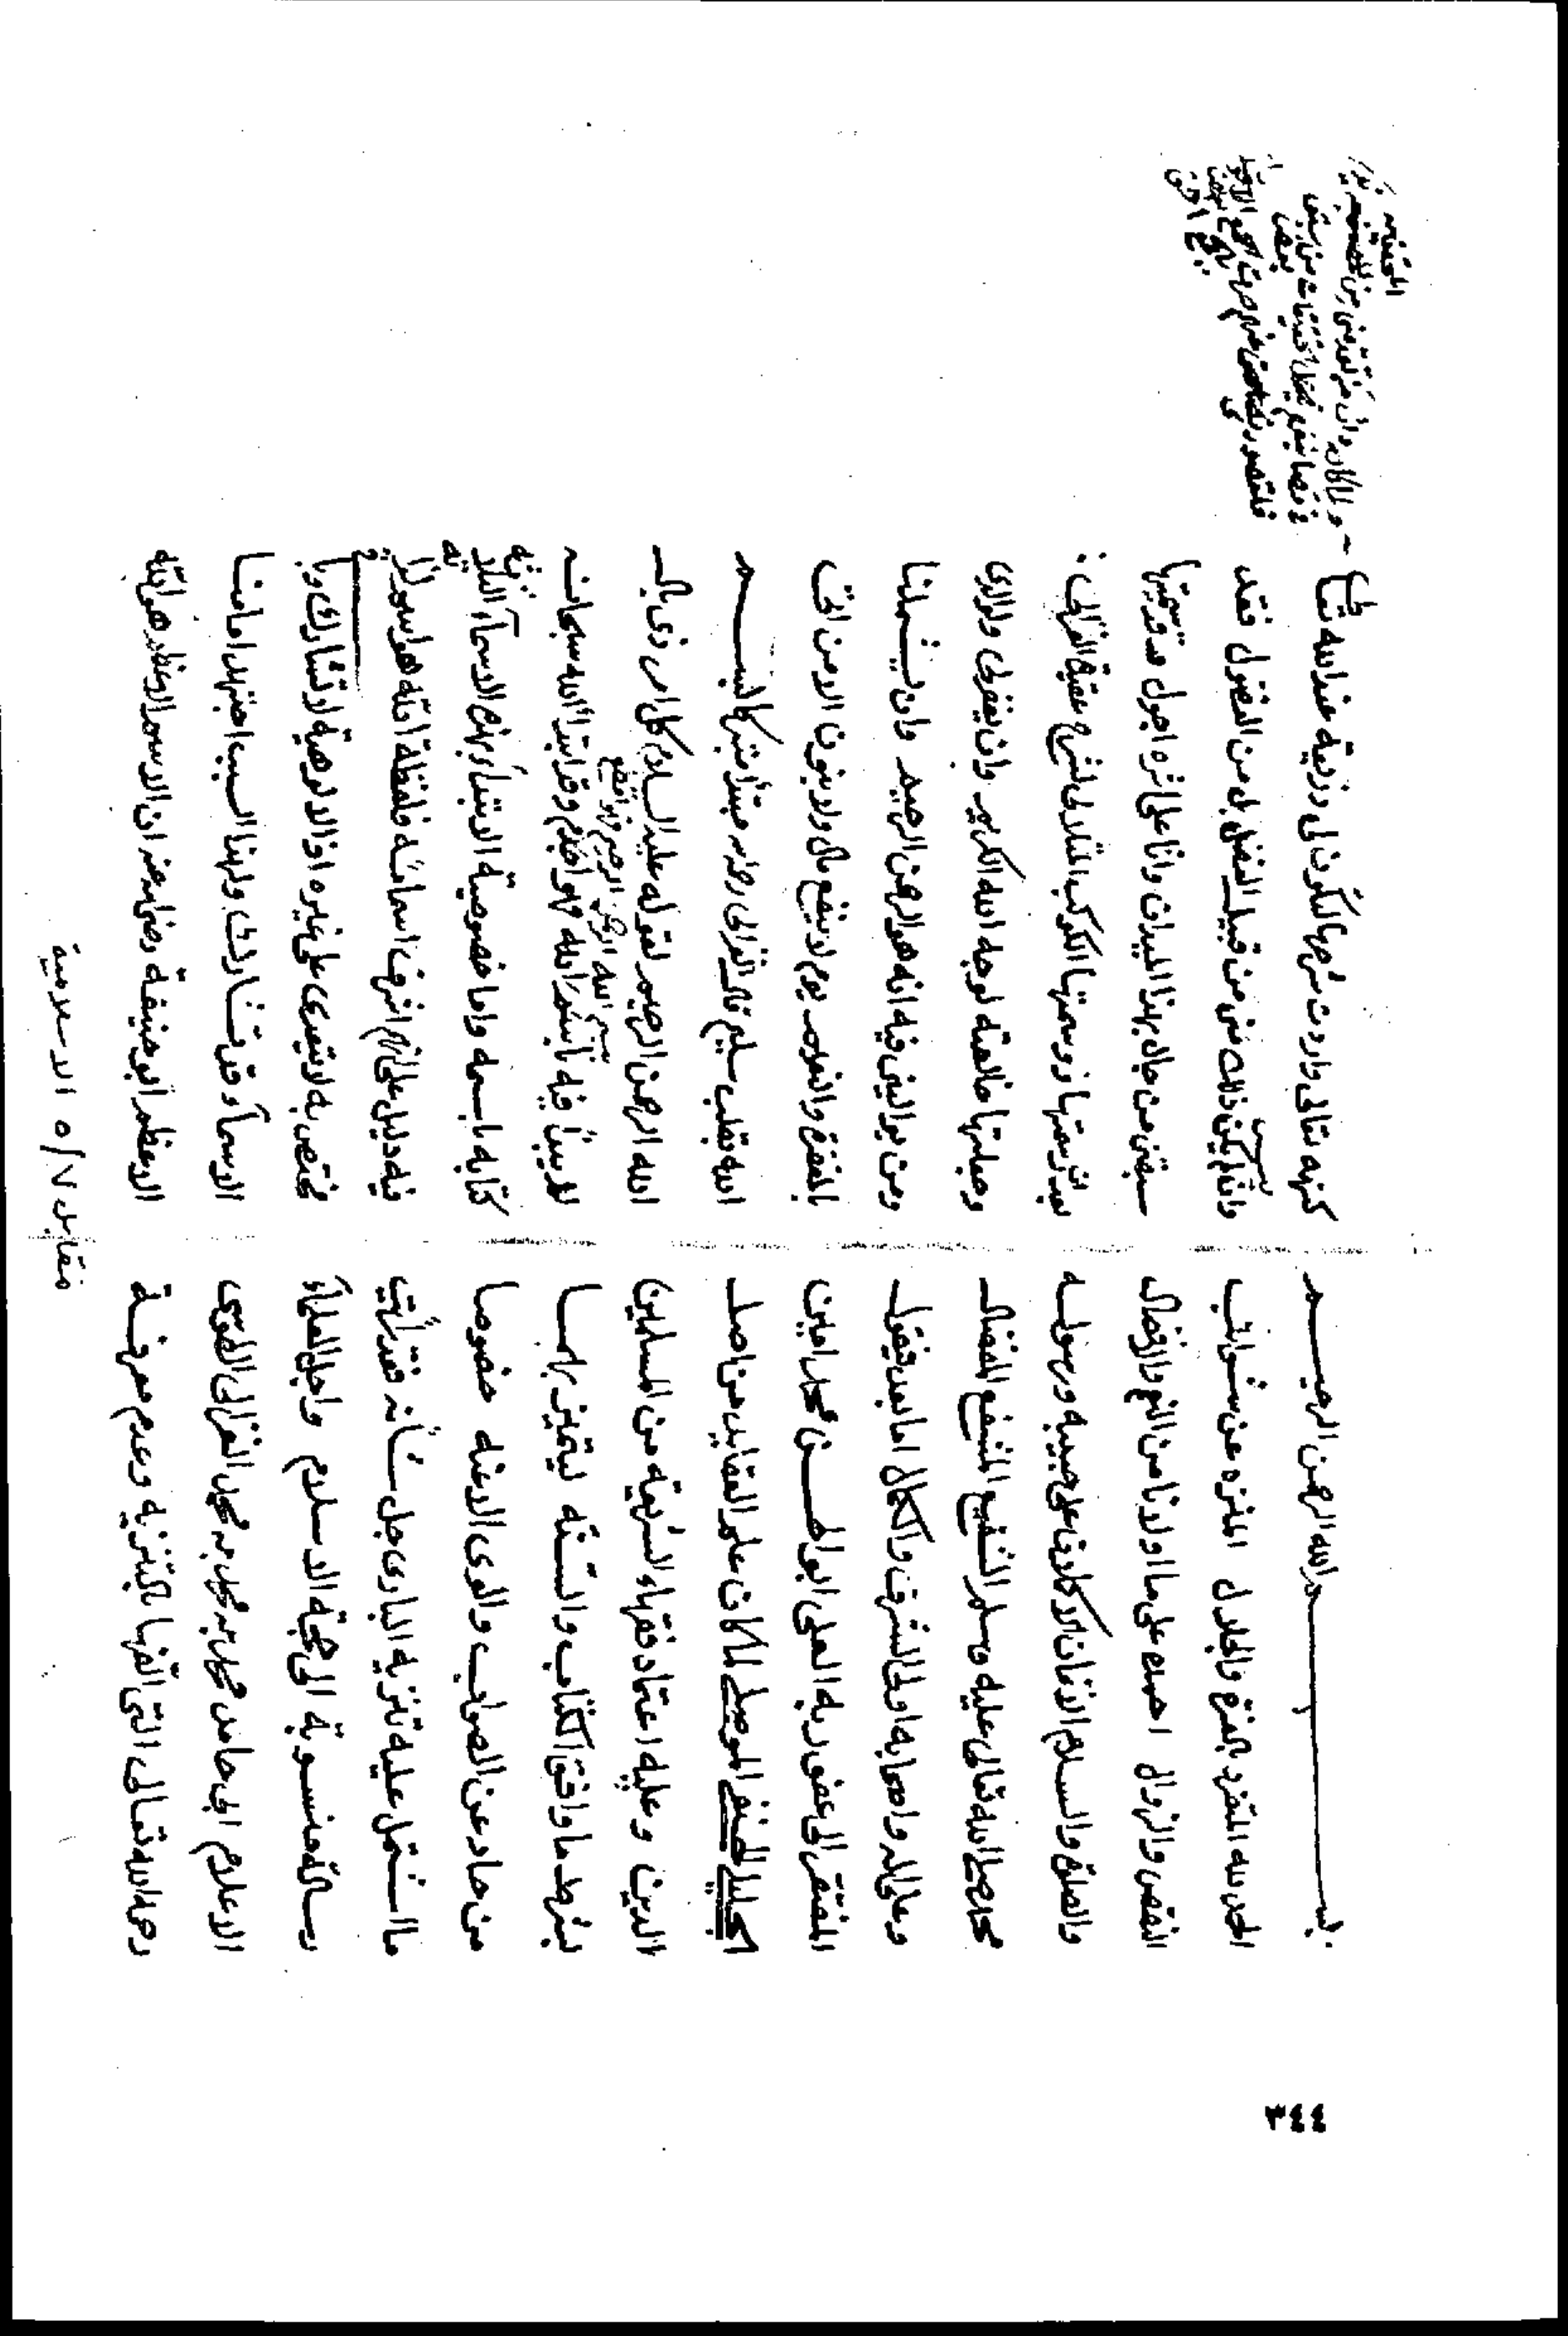 بسم الله الرحمن الرحيم
الحمد لله المتفرد بالعزة والجلال المنزه عن شوائب
النقص والزوال احمده على ما اولانا من النعم والافضال
والصلوة والسلام الاتمان الاكملان على حبيبه ورسوله
محمد صلى الله تعالى عليه وسلم الشفيع المشفع المفضال
وعلى اله واصحابه اولى الشرف والكمال اما بعد فيقول
المفتقر الى عفو ربه العلى ابو الحسن محمد امين
الجليلي الحنفي الموصلي لما كان علم العقايد من اصل
الدين وعليه اعتماد فقهاء الشريعة من المسلمين
بشرط ما وافق الكتاب والسنه ليتميز بهما
من حاد عن الصواب ولوى الاعنه خصوصا
ما اشتمل عليه تنزيه البارى جل شأنه فقد رأيت
رسالة منسوبة الى حجة الاسلام واجل العلماء
الاعلام ابى حامد محمد بن محمد بن محمد الغزالى الطوسى
رحمه الله تعالى التى الفها بالتنزيه وعدم معرفة
كنهه تعالى واردت شرحها لتكون لى ذريعة عند الله تعالى
وان لم يكن ذلك منى من قبيل الفضل بل من الفضول فقد
سبقنى من جال بهذا الميدان وانا على اثره اجول هذا وسميتها
بعد ان رسمتها ووسمتها الكوكب المتلالى لشرح عقيدة الغزالى
وجعلتها خالصة لوجه الله الكريم وان يغفر لى ولوالدى
ومن يوالينى فيه انه هو الرحمن الرحيم وان يشملنا
بالمغفرة والفوز يوم لا ينفع مال ولا بنون الا من اتى
الله بقلب سليم قال الغزالى رحمه الله مبتدأ متبركا بسم
الله الرحمن الرحيم لقوله عليه السلام كل امر ذى بال
لا يبدأ فيه بسم الله فهو اجذم وقد ابتدأ الله سبحانه
بسم الله الرحمن الرحيم فهو اقطع
كتابه باسمه واما خصوصية الابتداء بهذه الاسماء الثلاثة
فيه دليل على انهم اشرف اسمائه فلفظة الله هو اسم لذاته
مختص به لا يتعدى على غيره اذ الالوهية لا تشارك وباقى
الاسماء قد تشارك ولهذا السبب اجتهد امامنا
الاعظم ابو حنيفة رضى الله عنه ان الاسم الاعظم هو الله
مقابل ٥/٧ الاسلامية
٣٤٤